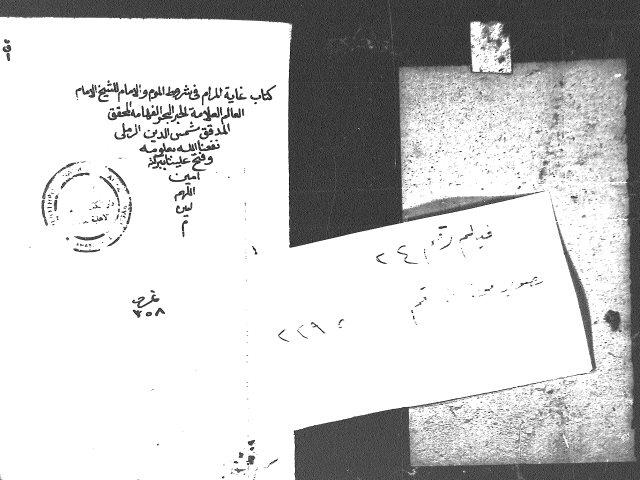 كتاب غاية المرام فى شروط الماموم والامام للشيخ الامام
العالم العلامة الحبر البحر الفهامه المحقق
المدقق شمس الدين الرملى
نفعنا الله بعلومه
وفتح علينا ببركة
امين
اللهم
امين
م
٣٥٨
فيلم رقم ٢٤
رقم
٢٢٩